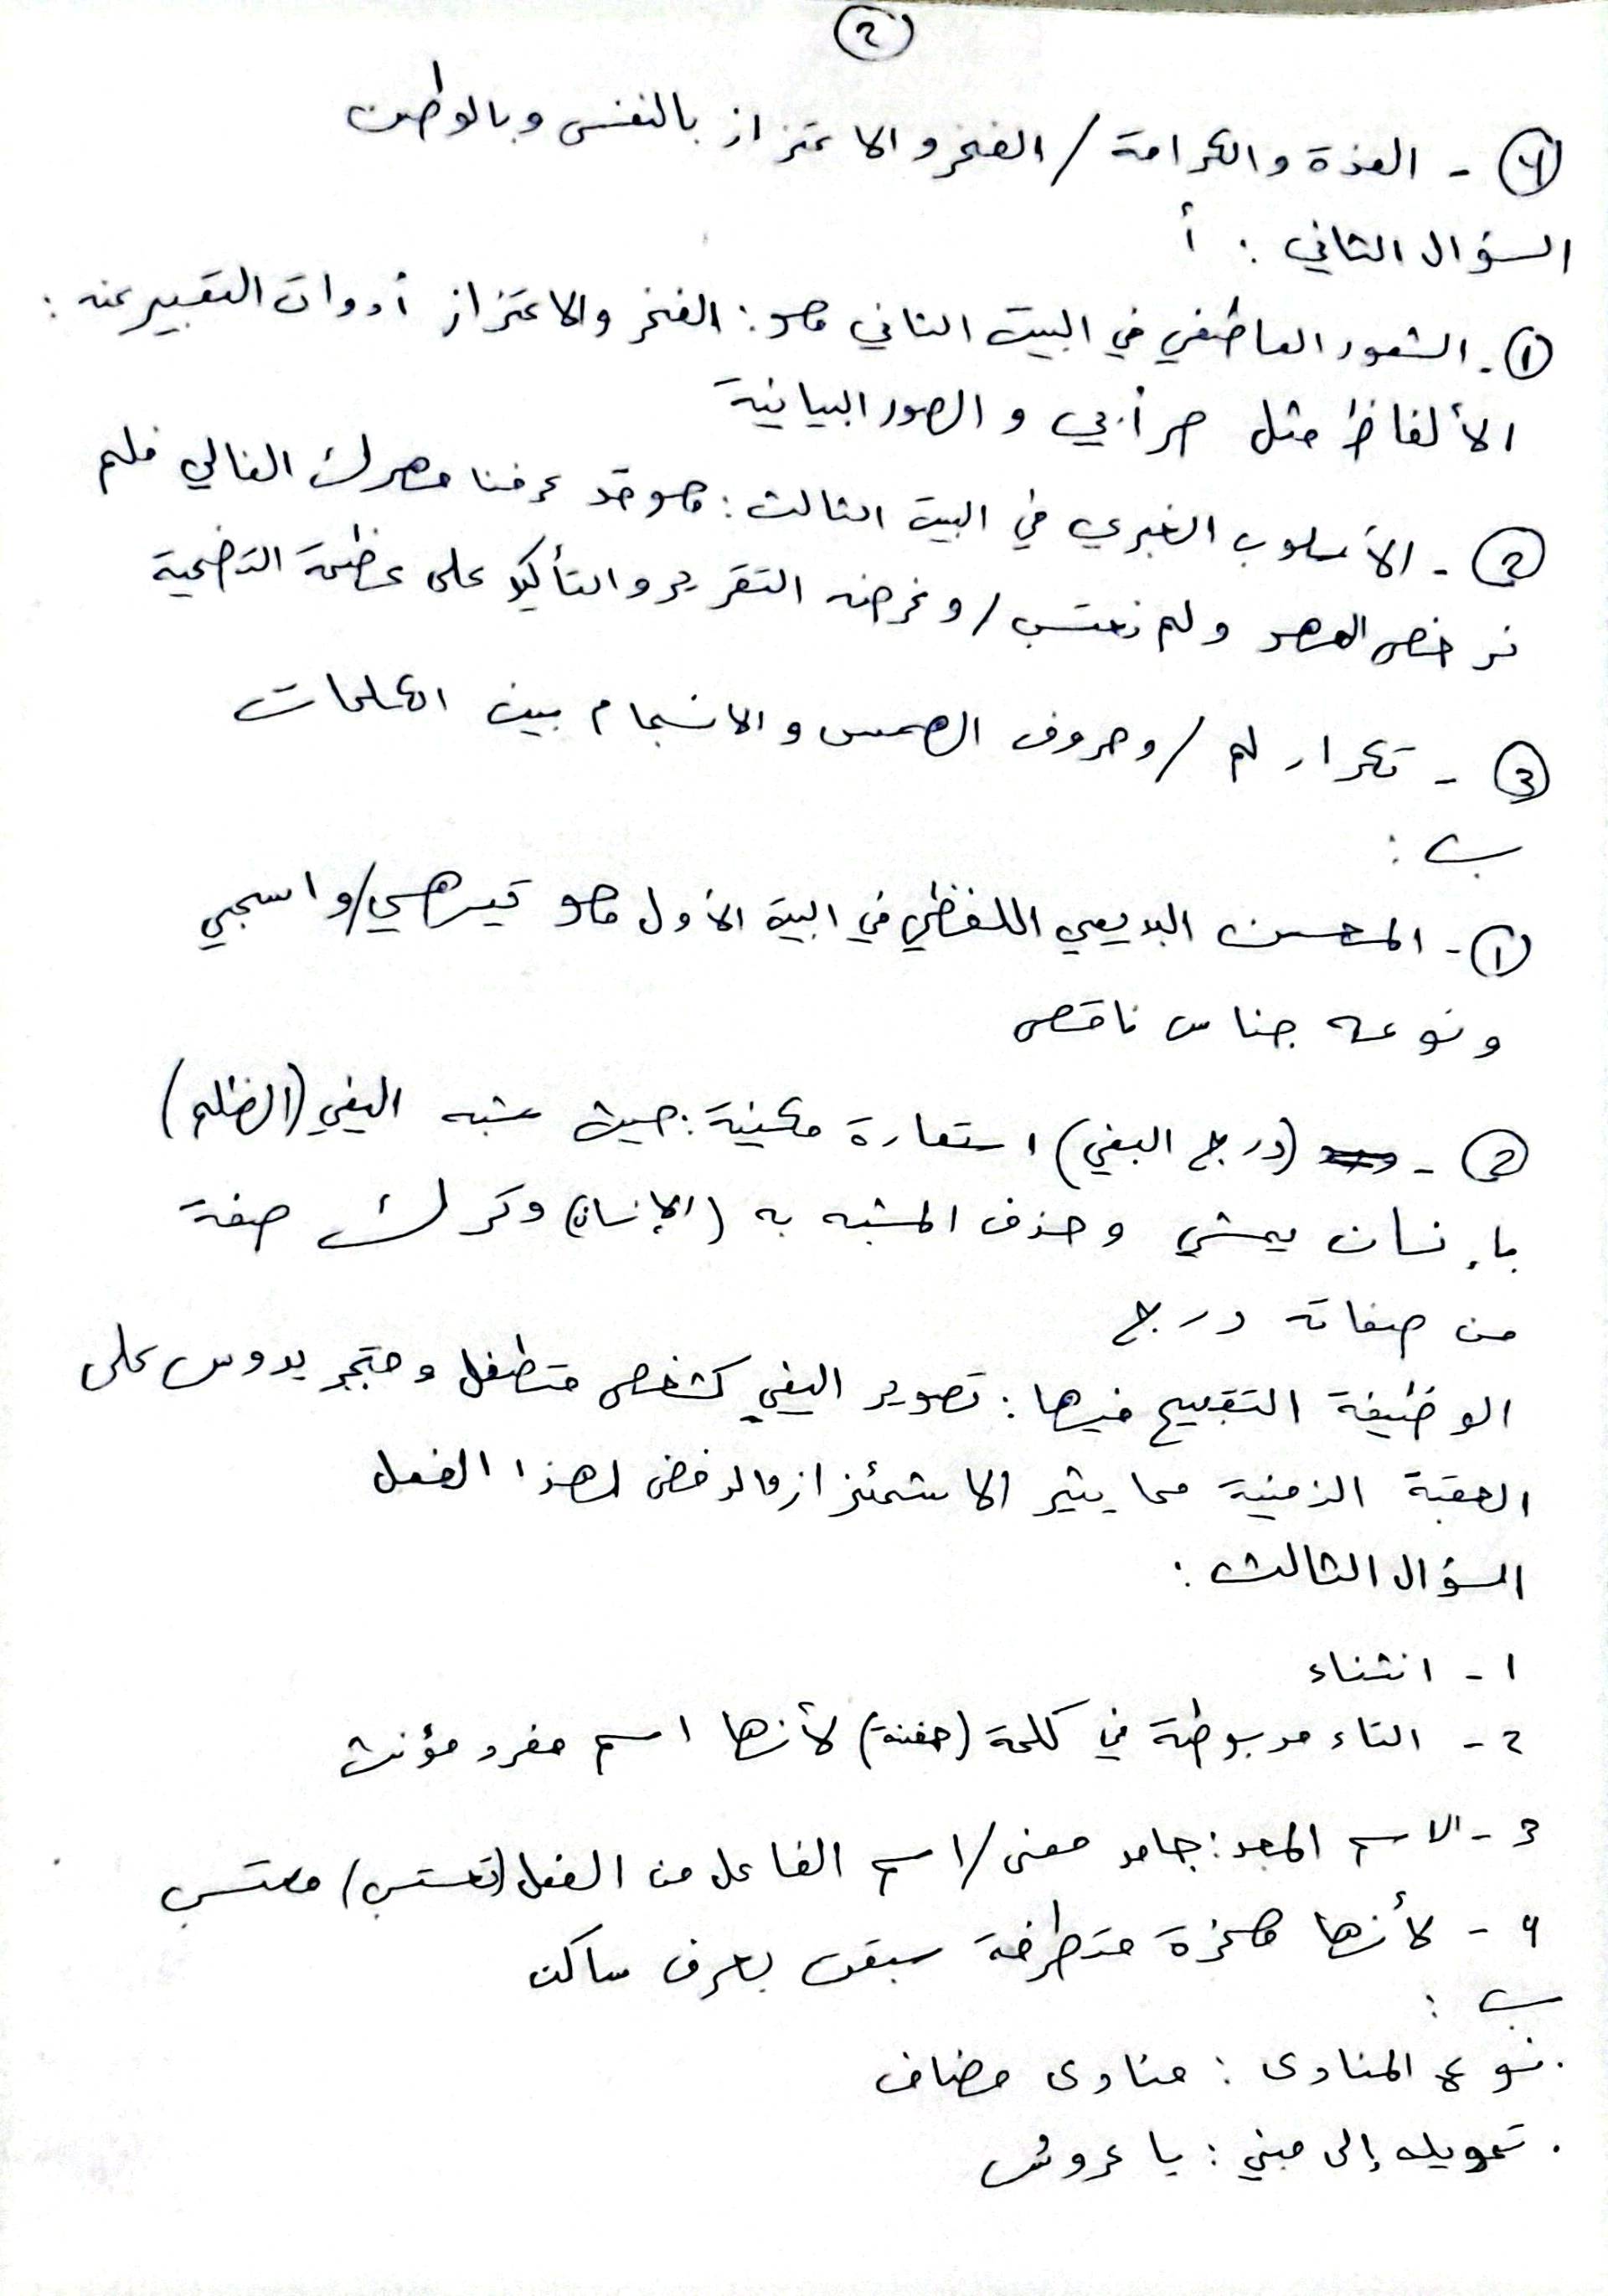 2
4 - العزة والكرامة / الفخر والاعتزاز بالنفس وبالوطن
السؤال الثاني : أ
1 - الشعور العاطفي في البيت الثاني هو : الفخر والاعتزاز أدوات التعبير عنه :
الألفاظ مثل مر أبي والصور البيانية
2 - الأسلوب الخبري في البيت الثالث : هو قد عرفنا مهرك الغالي فلم
نرخص المهر ولم نحتسب / وغرضه التقرير والتأكيد على عظمة التضحية
3 - تكرار لم / وحروف الهمس والانسجام بين الكلمات
ب :
1 - المحسن البديعي اللفظي في البيت الأول هو تيهي / واسحبي
ونوعه جناس ناقص
2 - (درج البغي) استعارة مكنية : حيث شبه البغي (الظلم)
بإنسان يمشي وحذف المشبه به (الإنسان) وترك صفة
من صفاته درج
الوظيفة التقبيح فيها : تصوير البغي كشخص متطفل ومتجبر يدوس على
الحقبة الزمنية مما يثير الاشمئزاز والرفض لهذا الفعل
السؤال الثالث :
1 - انثناء
2 - التاء مربوطة في كلمة (حفنة) لأنها اسم مفرد مؤنث
3 - الاسم المجد : جامد معنى / اسم الفاعل من الفعل (تحتسب) محتسب
4 - لأنها همزة متطرفة سبقت بحرف ساكن
ب :
. نوع المنادى : منادى مضاف
. تحويله إلى مبني : يا عروسُ